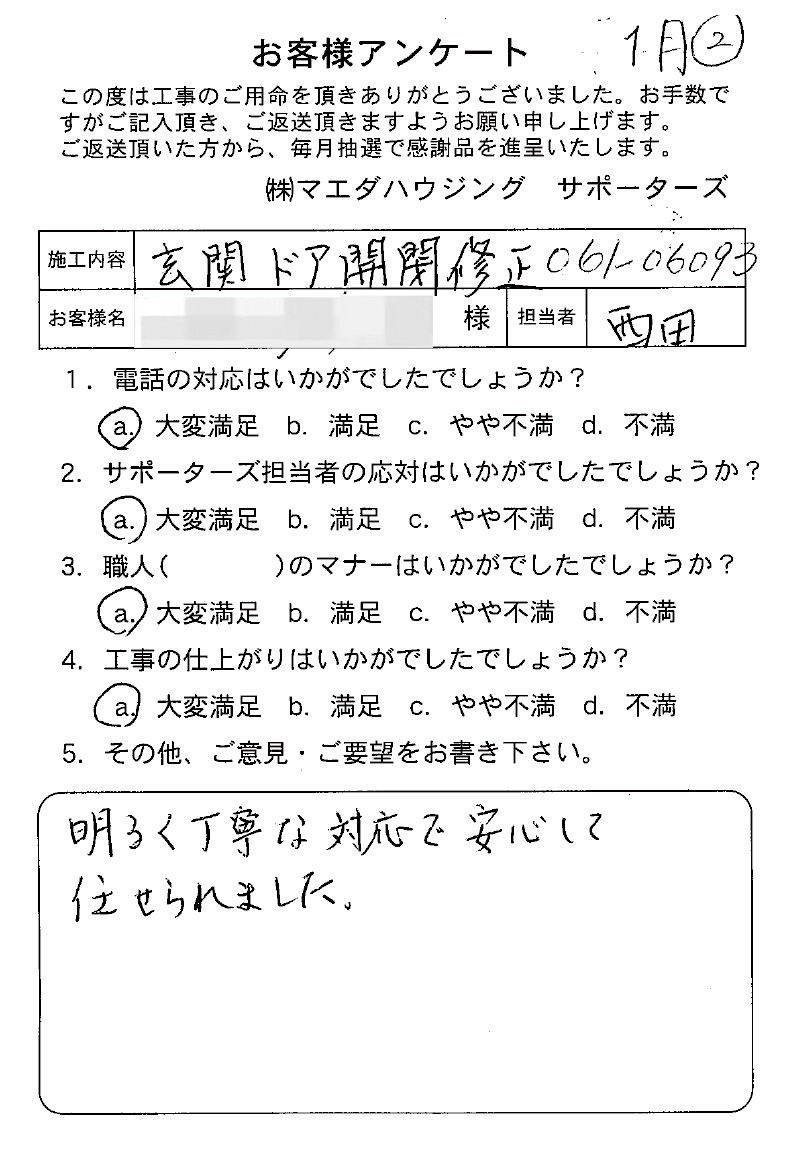 1月②
お客様アンケート
この度は工事のご用命を頂きありがとうございました。お手数で
すがご記入頂き、ご返送頂きますようお願い申し上げます。
ご返送頂いた方から、毎月抽選で感謝品を進呈いたします。
㈱マエダハウジング　サポーターズ
施工内容 玄関ドア開閉修正 061-06093
お客様名 様 担当者 西田
1. 電話の対応はいかがでしたでしょうか？
a. 大変満足 b. 満足 c. やや不満 d. 不満
2. サポーターズ担当者の応対はいかがでしたでしょうか？
a. 大変満足 b. 満足 c. やや不満 d. 不満
3. 職人(　　　　)のマナーはいかがでしたでしょうか？
a. 大変満足 b. 満足 c. やや不満 d. 不満
4. 工事の仕上がりはいかがでしたでしょうか？
a. 大変満足 b. 満足 c. やや不満 d. 不満
5. その他、ご意見・ご要望をお書き下さい。
明るく丁寧な対応で安心して
任せられました。